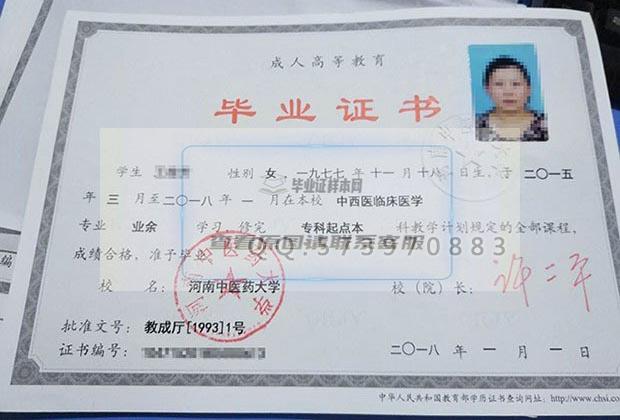 成人高等教育
毕业证书
学生 性别 女，一九七七年 十一月 十八 日生，于 二〇一五
年 三 月至二〇一八年 一 月在本校 中西医临床医学
毕业证样本网
专业 业余 学习，修完 专科起点本 科教学计划规定的全部课程，
查看原图请联系客服
QQ:573970883
成绩合格，准予毕业。
校 名： 河南中医药大学 校（院）长：
批准文号： 教成厅[1993]1号
证书编号： 二〇一八 年 一 月 一 日
中华人民共和国教育部学历证书查询网址：http://www.chsi.co